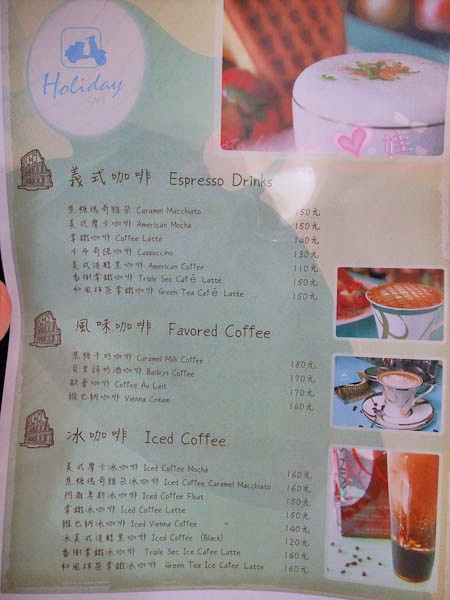 Holiday
CAFE
義式咖啡 Espresso Drinks
焦糖瑪奇雅朵 Caramel Macchiato 150元
美式摩卡咖啡 American Mocha 150元
拿鐵咖啡 Coffee Latte 140元
卡布奇諾咖啡 Cappuccino 130元
美式淡醇黑咖啡 American Coffee 110元
香榭拿鐵咖啡 Triple Sec Café Latte 150元
和風抹茶拿鐵咖啡 Green Tea Café Latte 150元
風味咖啡 Favored Coffee
焦糖牛奶咖啡 Caramel Milk Coffee 180元
貝里詩奶酒咖啡 Baileys Coffee 170元
歐蕾咖啡 Coffee Au Lait 170元
維也納咖啡 Vienna Cream 160元
冰咖啡 Iced Coffee
美式摩卡冰咖啡 Iced Coffee Mocha 160元
焦糖瑪奇雅朵冰咖啡 Iced Coffee Caramel Macchiato 160元
阿爾卑斯冰咖啡 Iced Coffee Float 150元
拿鐵冰咖啡 Iced Coffee Latte 150元
維也納冰咖啡 Iced Vienna Coffee 140元
冰美式淡醇黑咖啡 Iced Coffee (Black) 120元
香榭拿鐵冰咖啡 Triple Sec Ice Cafee Latte 160元
和風抹茶拿鐵冰咖啡 Green Tea Ice Cafee Latte 160元